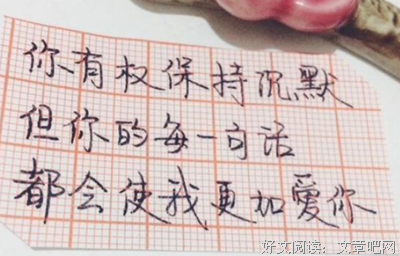 你有权保持沉默
但你的每一句话
都会使我更加爱你
好文阅读：文章吧网